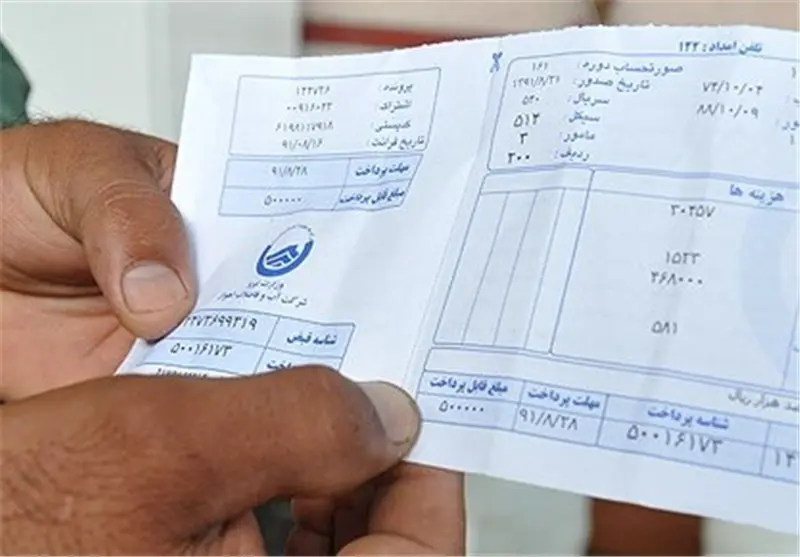 تلفن امداد : ۱۲۲
صورتحساب دوره : ۱۶۱
تاریخ صدور : ۱۳۹۱/۸/۲۱
سریال : ۵۴۰
سیکل : ۵۱۲
مامور : ۳
ردیف : ۲۰۰
۷۴/۱۰/۰۴
۸۸/۱۰/۰۹
هزینه ها
۳۰۴۵۷
۱۵۲۳
۴۶۸۰۰۰
۵۸۱
هزار ریال
مبلغ قابل پرداخت مهلت پرداخت شناسه پرداخت
۵۰۰۰۰۰ ۹۱/۸/۲۸ ۵۰۰۱۶۱۷۳
پرونده : ۱۲۲۷۲۶
اشتراک : ۰۰۹۱۶۰۲۳
کدپستی : ۶۱۹۸۱۱۷۹۱۸
تاریخ قرائت : ۹۱/۰۸/۱۶
مهلت پرداخت ۹۱/۸/۲۸
مبلغ قابل پرداخت ۵۰۰۰۰۰
وزارت نیرو
شرکت آب و فاضلاب اهواز
شناسه قبض
پرداخت ۵۰۰۱۶۱۷۳